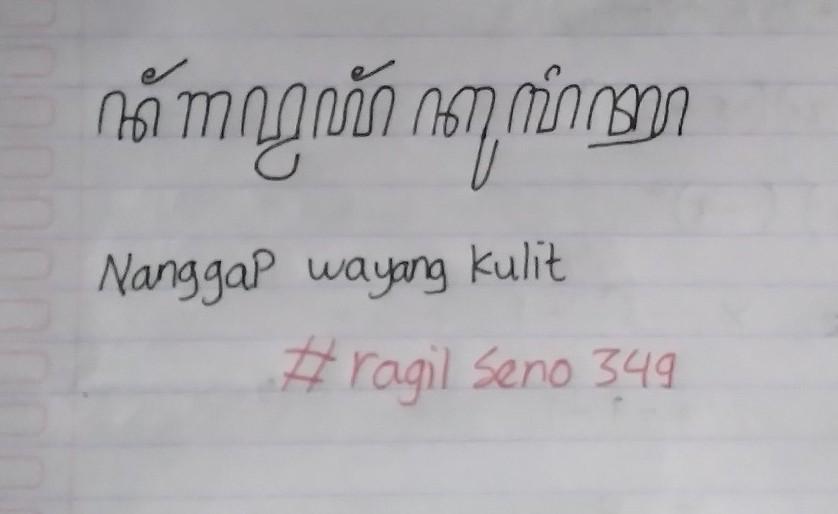 ꦤꦁꦒꦥ꧀ꦮꦪꦁꦏꦸꦭꦶꦠ꧀
Nanggap wayang kulit
#ragil Seno 349